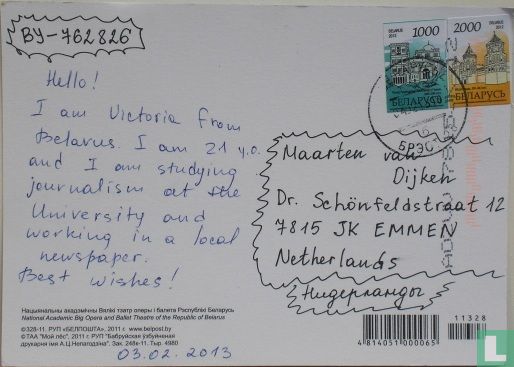 BY-762826
Hello!
I am Victoria from
Belarus. I am 21 y.o.
and I am studying
journalism at the
University and
working in a local
newspaper.
Best wishes!
03.02.2013
BELARUS
2012
1000
БЕЛАРУСЬ
BELARUS
2012
2000
БЕЛАРУСЬ
БРЭС
Maarten van
Dijken
Dr. Schönfeldstraat 12
7815 JK EMMEN
Netherlands
Нидерланды
Нацыянальны акадэмічны Вялікі тэатр оперы і балета Рэспублікі Беларусь
National Academic Big Opera and Ballet Theatre of the Republic of Belarus
©328-11. РУП «БЕЛПОШТА», 2011 г. www.belpost.by
©ТАА "Мой лёс", 2011 г. РУП "Бабруйская ўзбуйненая
друкарня імя А.Ц.Непагодзіна". Зак. 248е-11. Тыр. 4980
11328
4 814051 000065